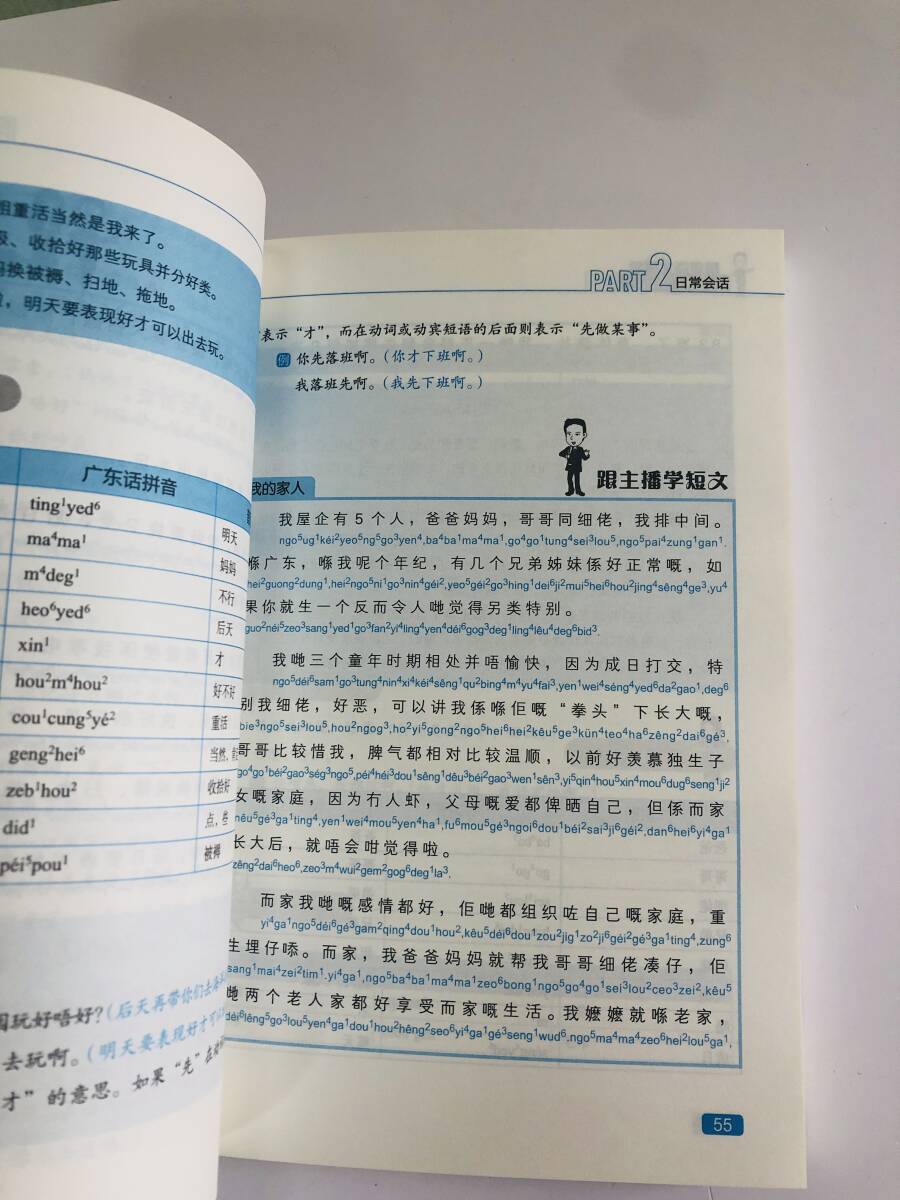 重活当然是我来了。
、收拾好那些玩具并分好类。
换被褥、扫地、拖地。
，明天要表现好才可以出去玩。
广东话拼音
ting¹yed⁶
明天
ma⁴ma¹
妈妈
m⁴deg¹
不行
heo⁶yed⁶
后天
xin¹
才
hou²m⁴hou²
好不好
cou¹cung⁵yé²
重活
geng²hei⁶
当然，
zeb¹hou²
收拾好
did¹
点，些
péi⁵pou¹
被褥
玩好唔好？（后天再带你们去
去玩啊。（明天要表现好才可
才”的意思。如果“先”在
PART 2 日常会话
表示“才”，而在动词或动宾短语的后面则表示“先做某事”。
例 你先落班啊。（你才下班啊。）
我落班先啊。（我先下班啊。）
跟主播学短文
我的家人
我屋企有5个人，爸爸妈妈，哥哥同细佬，我排中间。
ngo⁵ug¹kéi²yeo⁵ng⁵go³yen⁴,ba⁴ba¹ma⁴ma¹,go⁴go¹tung⁴sei³lou⁵,ngo⁵pai⁴zung¹gan¹.
喺广东，喺我呢个年纪，有几个兄弟姊妹係好正常嘅，如
hei²guong²dung¹,hei²ngo⁵ni¹go³nin⁴géi²,yeo⁵géi²go³hing¹dei⁶ji²mui⁵hei⁶hou²jing⁴sêng⁴ge³,yu⁴
果你就生一个反而令人哋觉得另类特别。
guo²néi⁵zeo³sang¹yed¹go³fan²yi⁴ling⁴yen⁴déi⁶gog³deg¹ling⁴lêu⁴deg⁶bid³.
我哋三个童年时期相处并唔愉快，因为成日打交，特
ngo⁵déi⁶sam¹go³tung⁴nin⁴xi⁴kéi⁴sêng¹qu²bing⁴m⁴yu⁴fai³,yen¹wei⁴séng⁴yed⁶da²gao¹,deg⁶
别我细佬，好恶，可以讲我係喺佢嘅“拳头”下长大嘅，
bie³ngo⁵sei³lou⁵,hou²ngog³,ho²yi⁵gong²ngo⁵hei⁶hei²kêu⁵ge³kün⁴teo⁴ha⁶zêng²dai⁶gé³,
哥哥比较惜我，脾气都相对比较温顺，以前好羡慕独生子
go⁴go¹béi²gao³ség³ngo⁵,péi⁴héi³dou¹sêng¹dêu³béi²gao³wen¹sên³,yi⁵qin⁴hou⁵xin⁴mou⁶dug⁶seng¹ji²
女嘅家庭，因为冇人虾，父母嘅爱都俾晒自己，但係而家
nêu⁵gé³ga¹ting⁴,yen¹wei⁴mou⁵yen⁴ha¹,fu⁶mou⁵gé³ngoi⁶dou¹béi²sai³ji⁶géi²,dan⁶hei⁶yi⁴ga¹
长大后，就唔会咁觉得啦。
zêng²dai⁶heo⁶,zeo³m⁴wui²gem²gog⁶deg¹la³.
而家我哋嘅感情都好，佢哋都组织咗自己嘅家庭，重
yi⁴ga¹ngo⁵déi⁶gé³gam²qing⁴dou¹hou²,kêu⁵déi⁶dou¹zou²jig¹zo²ji⁶géi²gé³ga¹ting⁴,zung⁶
生埋仔㖭。而家，我爸爸妈妈就帮我哥哥细佬凑仔，佢
sang¹mai⁴zei²tim¹.yi⁴ga¹,ngo⁵ba⁴ba¹ma⁴ma¹zeo⁶bong¹ngo⁵go⁴go¹sei³lou²ceo³zei²,kêu⁵
哋两个老人家都好享受而家嘅生活。我嬷嬷就喺老家，
déi⁶lêng⁵go³lou⁵yen⁴ga¹dou¹hou²hêng²seo⁶yi⁴ga¹gé³seng¹wud⁶.ngo⁵ma⁴ma⁴zeo⁶hei²lou⁵ga¹,
55